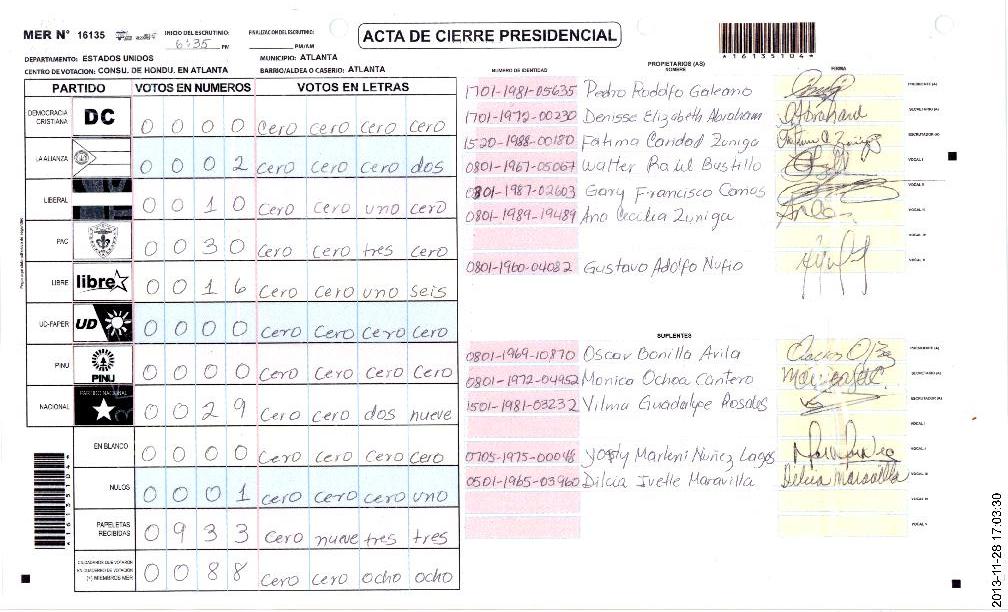 MER N° 16135
INICIO DEL ESCRUTINIO:
6:35 PM
FINALIZACION DEL ESCRUTINIO:
PM/AM
ACTA DE CIERRE PRESIDENCIAL
16135104
DEPARTAMENTO: ESTADOS UNIDOS
MUNICIPIO: ATLANTA
CENTRO DE VOTACION: CONSU. DE HONDU. EN ATLANTA
BARRIO/ALDEA O CASERIO: ATLANTA
PARTIDO VOTOS EN NUMEROS VOTOS EN LETRAS
DEMOCRACIA CRISTIANA DC 0 0 0 0 cero cero cero cero
LA ALIANZA 0 0 0 2 cero cero cero dos
LIBERAL 0 0 1 0 cero cero uno cero
PAC 0 0 3 0 cero cero tres cero
LIBRE libre 0 0 1 6 cero cero uno seis
UD-FAPER UD 0 0 0 0 cero cero cero cero
PINU PINU 0 0 0 0 cero cero cero cero
NACIONAL PARTIDO NACIONAL 0 0 2 9 cero cero dos nueve
EN BLANCO 0 0 0 0 cero cero cero cero
NULOS 0 0 0 1 cero cero cero uno
PAPELETAS RECIBIDAS 0 9 3 3 cero nueve tres tres
CIUDADANOS QUE VOTARON EN CUADERNO DE VOTACION (+) MIEMBROS MER 0 0 8 8 cero cero ocho ocho
16135104
PROPIETARIOS (AS)
NUMERO DE IDENTIDAD NOMBRE FIRMA
1701-1981-05635 Pedro Rodolfo Galeano PRESIDENTE (A)
1701-1972-00230 Denisse Elizabeth Abraham SECRETARIO (A)
1520-1988-00180 Fatima Caridad Zuniga ESCRUTADOR (A)
0801-1967-05067 Walter Raul Bustillo VOCAL I
0801-1987-02603 Gary Francisco Comas VOCAL II
0801-1989-19489 Ana Cecilia Zuniga VOCAL III
VOCAL IV
0801-1960-04082 Gustavo Adolfo Nuño VOCAL V
SUPLENTES
0801-1969-10870 Oscar Bonilla Avila PRESIDENTE (A)
0801-1972-04952 Monica Ochoa Cantero SECRETARIO (A)
1501-1981-03232 Vilma Guadalupe Rosales ESCRUTADOR (A)
VOCAL I
0705-1975-00048 Yosly Marleni Nuñez Lagos VOCAL II
0501-1965-03960 Dilcia Ivette Maravilla VOCAL III
VOCAL IV
VOCAL V
2013-11-28 17:03:30